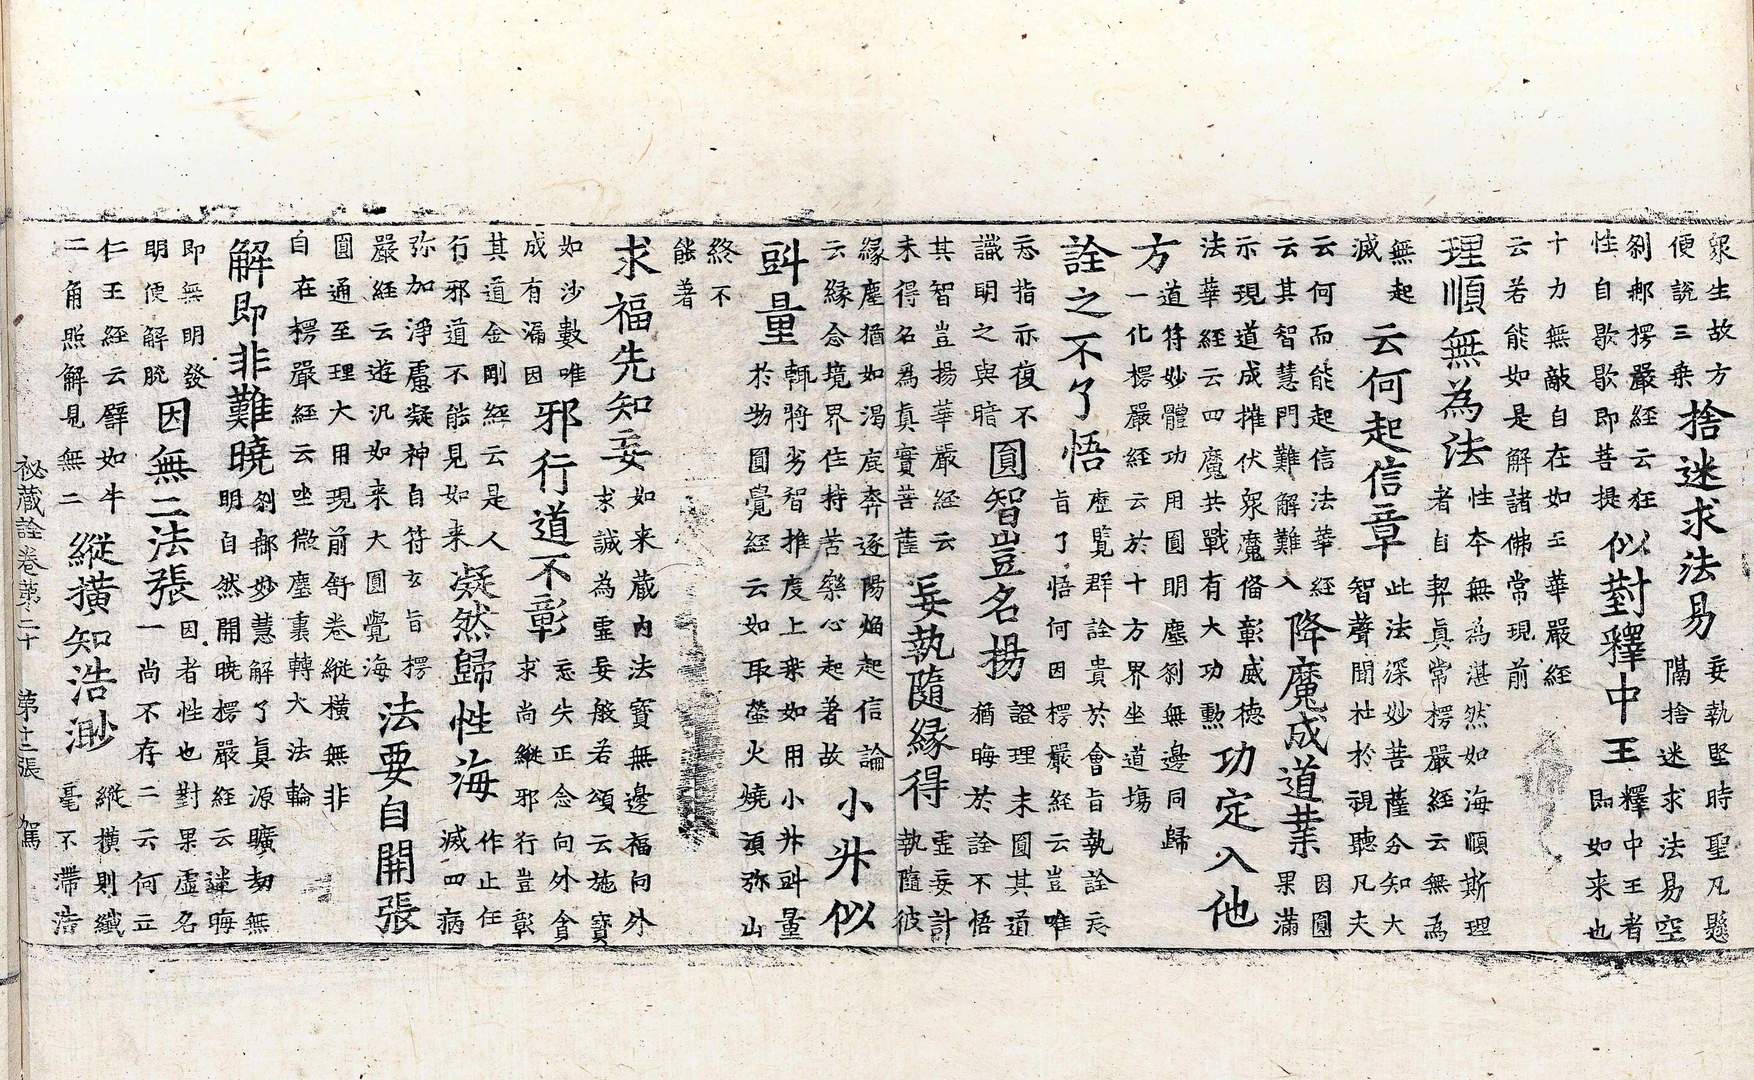 眾生故方
便說三乗
捨迷求法易
妄執堅時聖凡懸
隔捨迷求法易空
刹那楞嚴經云狂
性自歇歇即菩提
似對釋中王
釋中王者
即如来也
十力無敵自在如王華嚴經
云若能如是解諸佛常現前
理順無為法
性本無為湛然如海順斯理
者自契真常楞嚴經云無為
無起
滅
云何起信章
此法深妙菩薩分知大
智聲聞杜於視聽凡夫
云何而能起信法華經
云其智慧門難解難入
降魔成道業
因圓
果滿
示現道成摧伏眾魔俻彰威德
法華經云四魔共戰有大功勲
功定入他
方
道符妙體功用圓明塵刹無邊同歸
一化楞嚴經云於十方界坐道塲
詮之不了悟
歷覧群詮貴於會旨執詮忘
旨了悟何因楞嚴經云豈唯
忘指亦復不
識明之與暗
圓智豈名揚
證理未圓其道
猶晦於詮不悟
其智豈揚華嚴經云
未得名為真實菩薩
妄執隨緣得
虛妄計
執隨彼
緣塵猶如渴鹿奔逐陽焰起信論
云緣念境界住持苦樂心起著故
小升似
㪷量
輙將劣智推度上乗如用小升㪷量
於物圓覺經云如取螢火燒湏弥山
終不
能著
求福先知妄
如来藏內法寶無邊福向外
求誠為虛妄般若頌云施寶
如沙數唯
成有漏因
邪行道不彰
忘失正念向外貪
求尚縱邪行豈彰
其道金剛經云是人
行邪道不能見如来
凝然歸性海
作止任
滅四病
弥加淨慮凝神自符玄旨楞
嚴經云遊汎如来大圓覺海
法要自開張
圓通至理大用現前舒卷縱橫無非
自在楞嚴經云坐微塵裏轉大法輪
解即非難曉
刹那妙慧解了真源曠劫無
明自然開曉楞嚴經云迷晦
即無明發
明便解脫
因無二法張
因者性也對果虛名
一尚不存二云何立
仁王經云譬如牛
二角照解見無二
縱橫知浩渺
縱橫則纖
毫不滯浩
祕藏詮卷第二十 第十二張 駕